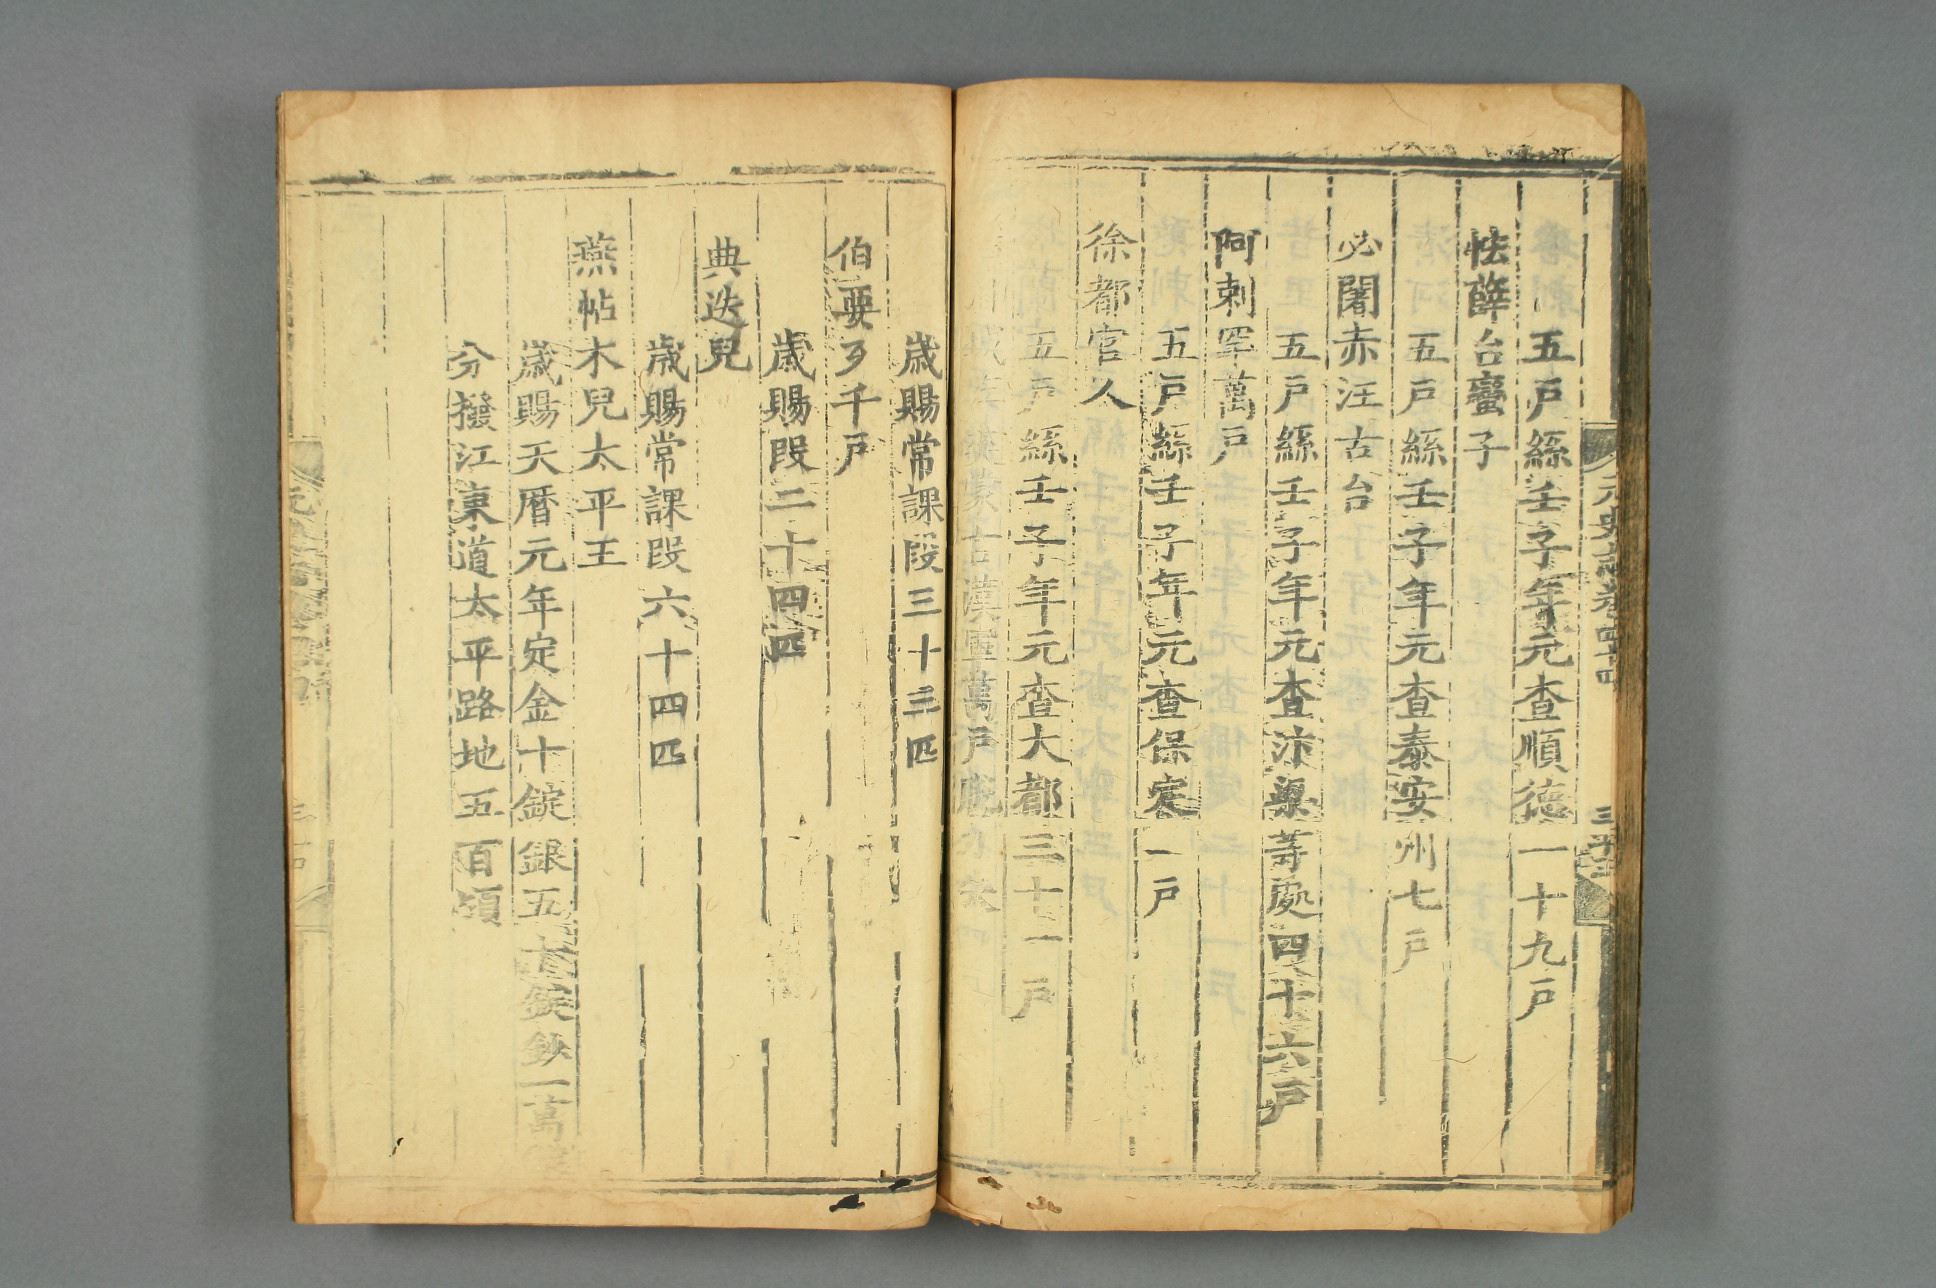 五戶絲壬子年元查順德一十九戶
怯薛台蠻子
五戶絲壬子年元查泰安州七戶
必闍赤汪古台
五戶絲壬子年元查汴梁等處四十六戶
阿剌罕萬戶
五戶絲壬子年元查保定一戶
徐都官人
五戶絲壬子年元查大都三十一戶
漢軍萬戶
歲賜常課段三十三匹
伯要歹千戶
歲賜段二十四匹
典迭兒
歲賜常課段六十四匹
燕帖木兒太平王
歲賜天曆元年定金十錠銀五十錠鈔一萬
分撥江東道太平路地五百頃